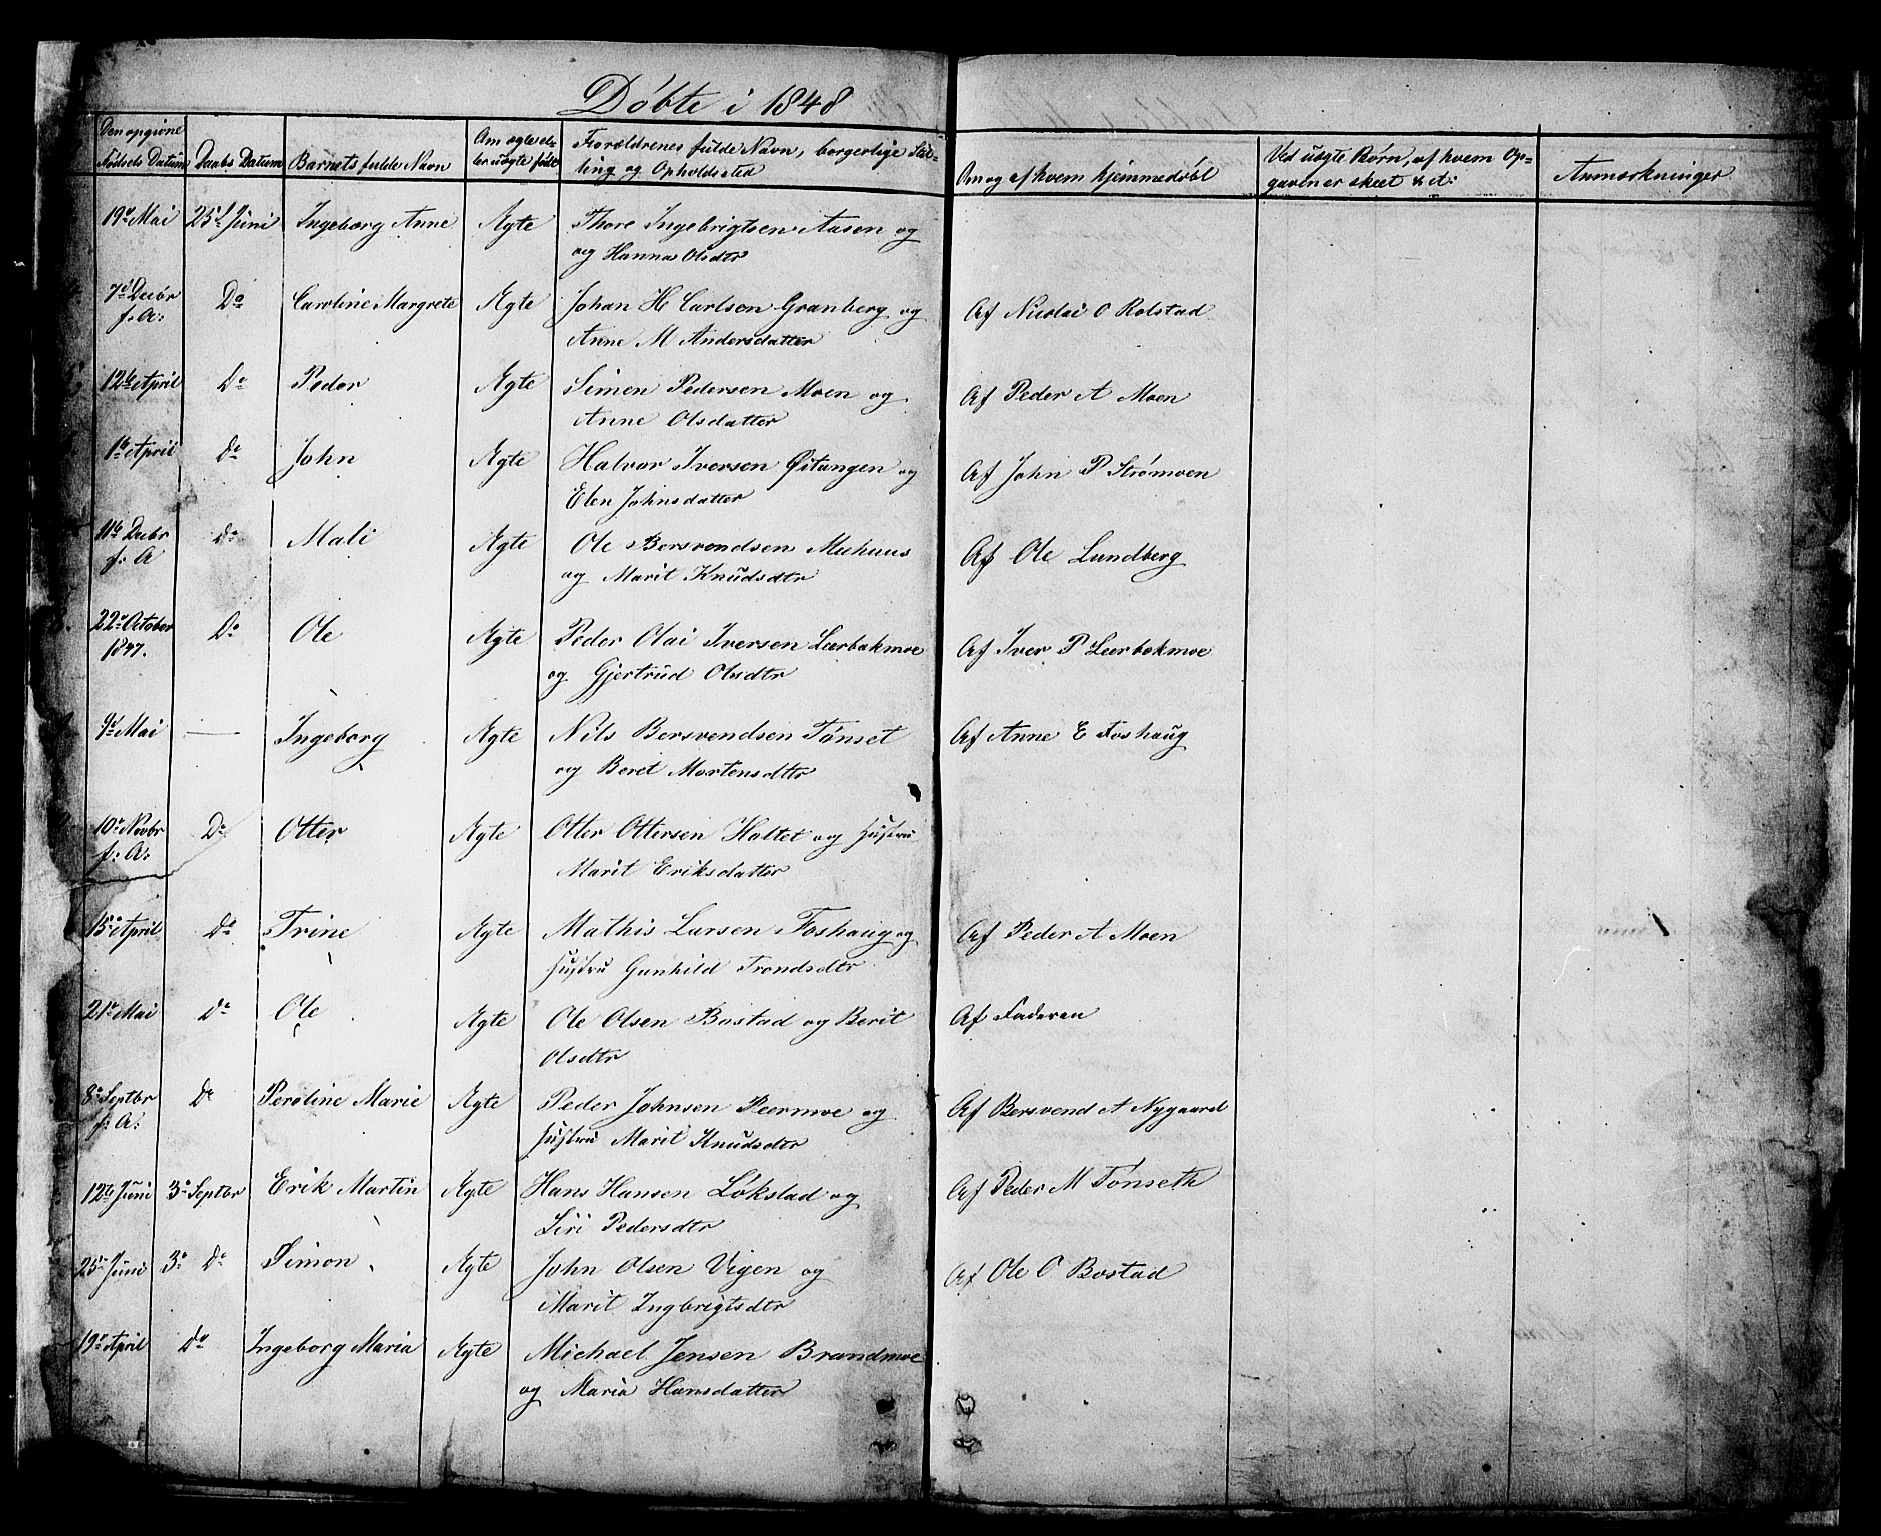 Døbte i 1848
Den opgivne Fødsels Datum | Daabs Datum | Barnets fulde Navn | Om ægte el- ler uægte født | Forældrenes fulde Navn, borgerlige Stil- ling og Opholdssted | Om og af hvem hjemmedøbt | Ved uægte Børn, af hvem Op- gaven er skeet &. A: | Anmærkninger
19de Mai | 25de Juni | Ingeborg Anne | Ægte | Thore Ingebrigtsen Aasen og
og Hanna Olsdtr
7de Decbr | Do | Caroline Margrete | Ægte | Johan H Carlsen Granberg og | Af Nicolai O Rolstad
f: A: | Anne M Andersdatter
12te April | Do | Peder | Ægte | Simen Pedersen Moen og | Af Peder A Moen
Anne Olsdatter
1te April | Do | John | Ægte | Halvor Iversen Østangen og | Af John P Strømoen
Elen Johnsdatter
11te Decbr | Do | Mali | Ægte | Ole Bersvendsen Mehuus | Af Ole Lundberg
f: A | og Marit Knudsdtr
22de October | Do | Ole | Ægte | Peder Olai Iversen Leerbakmoe | Af Iver P Leerbakmoe
1847. | og Gjertrud Olsdtr
9de Mai | — | Ingeborg | Ægte | Nils Bersvendsen Tønset | Af Anne E Foshaug
og Beret Mortensdtr
10de Novbr | Do | Otter | Ægte | Otter Ottersen Holtet og Hustru
f: A: | Marit Eriksdatter
15de April | Do | Trine | Ægte | Mathis Larsen Foshaug og | Af Peder A Moen
Hustru Gunhild Trondsdtr
21de Mai | Do | Ole | Ægte | Ole Olsen Bostad og Berit | Af Faderen
Olsdtr
8de Septbr | Do | Peroline Marie | Ægte | Peder Johnsen Peermoe og | Af Bersvend A Nygaard
f: A: | Hustru Marit Knudsdtr
12te Juni | 3de Septbr | Erik Martin | Ægte | Hans Hansen Løkstad og | Af Peder M Tønseth
Siri Pedersdtr
25de Juni | 3de Do | Simon | Ægte | John Olsen Vigen og | Af Ole O Bostad
Marit Ingbrigtsdtr
19de April | Do | Ingeborg Maria | Ægte | Michael Jensen Brandmoe
og Maria Hansdatter